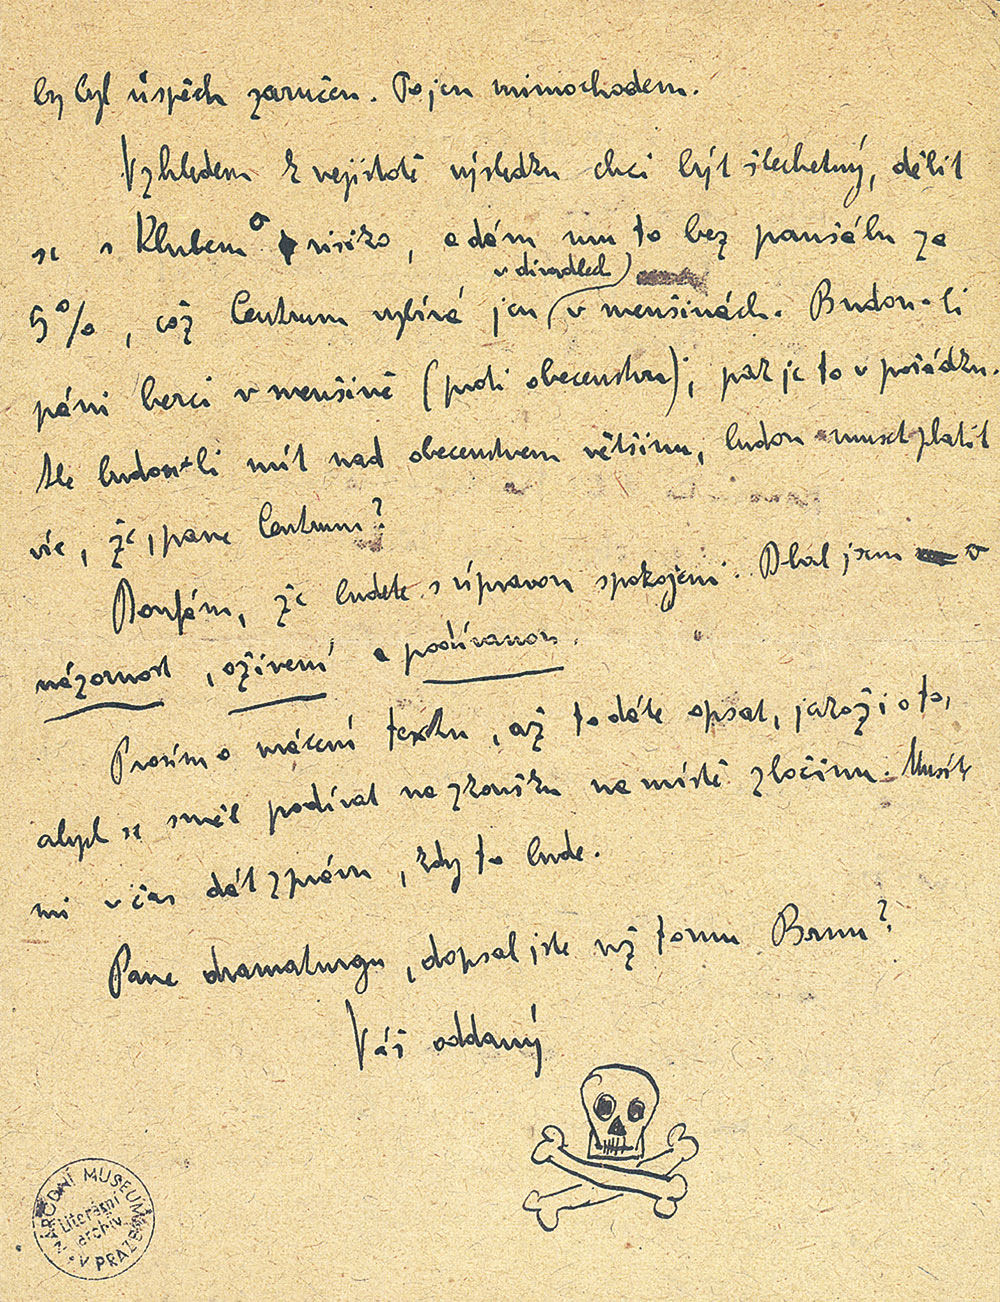 by byl úspěch zaručen. To jen mimochodem.
Vzhledem k nejistotě výsledku chci být šlechetný, dělit
se s Klubem o risiko, a dám mu to bez paušálu za
v divadlech
5%, což Centrum vybírá jen v menšinách. Budou-li
páni herci v menšině (proti obecenstvu), pak je to v pořádku.
Ale budou-li mít nad obecenstvem většinu, budou muset platit
víc, že, pane Centrum?
Doufám, že budete s úpravou spokojeni. Dbal jsem o
názornost, oživení a podívanou.
Prosím o vrácení textu, až to dáte opsat, jakož i o to,
abych se směl podívat na zkoušku na místě zločinu. Musíte
mi včas dát zprávu, kdy to bude.
Pane dramaturgu, dopsal jste už tomu Brnu?
Váš oddaný
NÁRODNÍ MUSEUM
Literární
archiv
V PRAZE